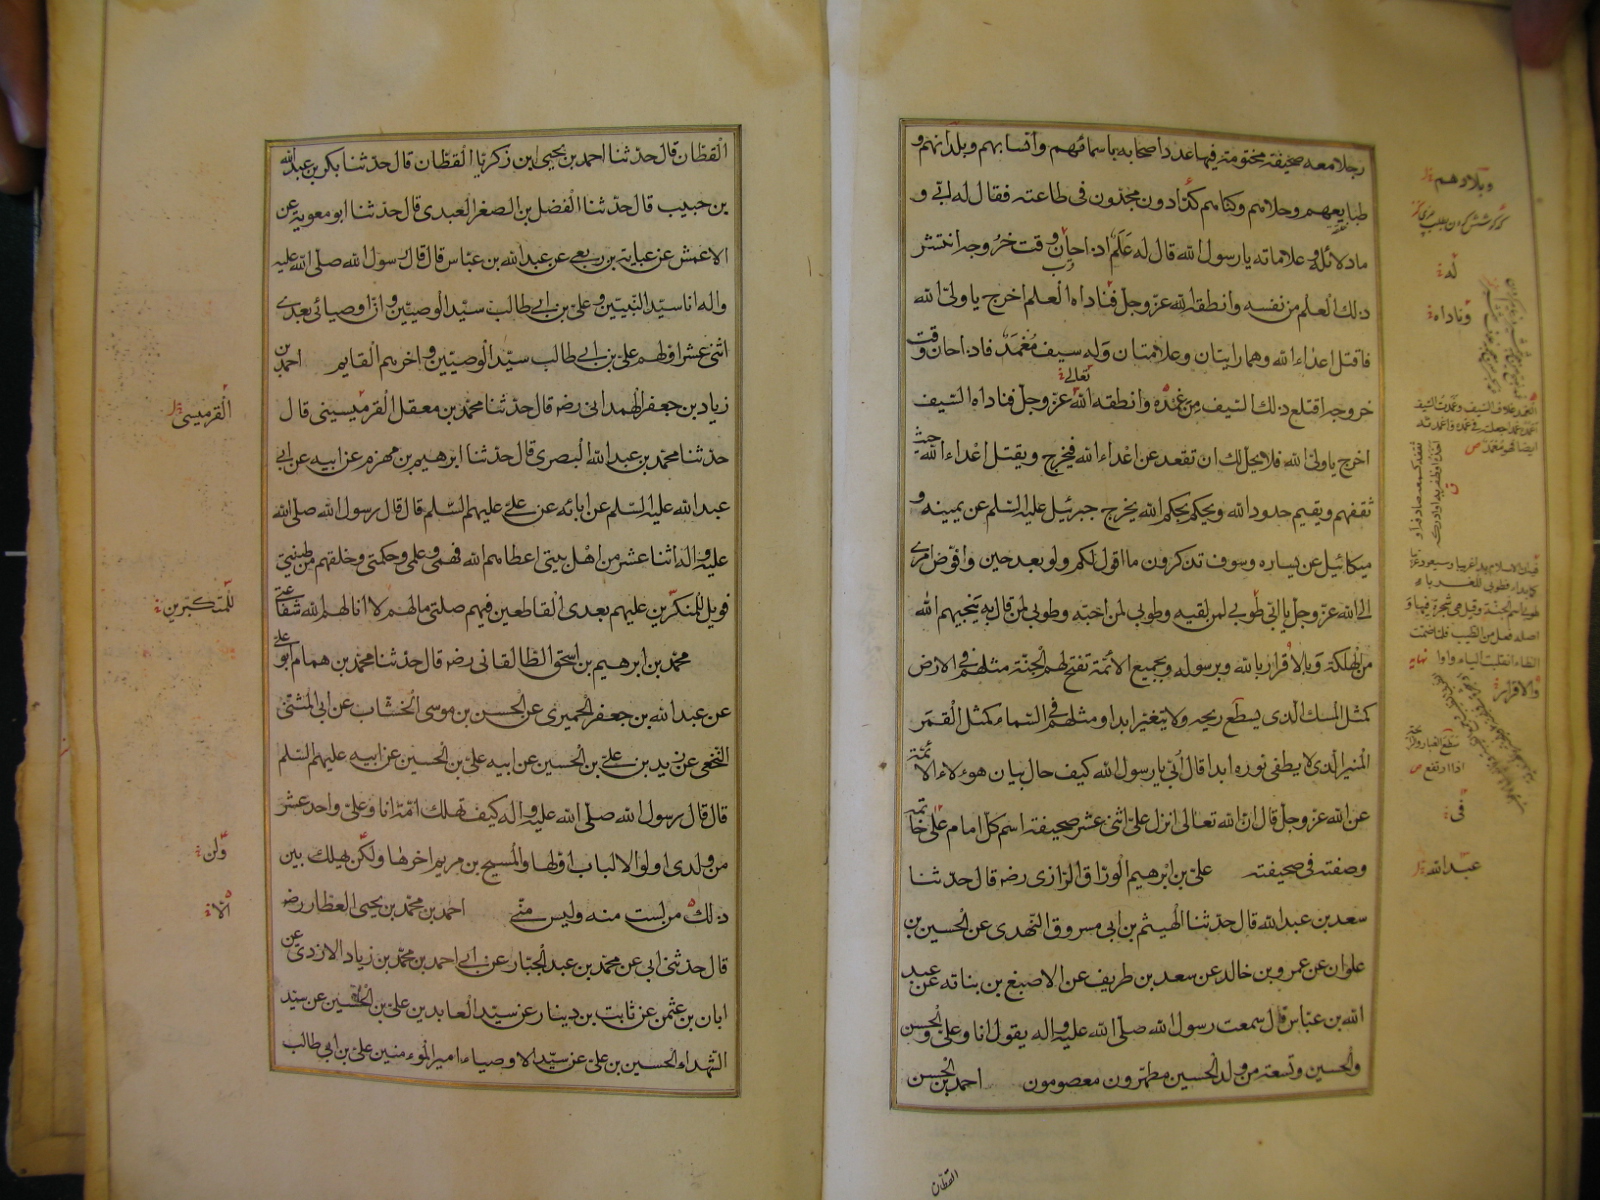 رجلا معه صحيفة مختومة فيها عدد اصحابه باسمائهم وانسابهم وبلدانهم و
طبايعهم وحلاهم وكناهم كدّادون مجدّون فى طاعته فقال له ابىّ و
ما دلائله وعلاماته يا رسول الله قال له عَلَم اذا حان وقت خروجه انتشر
ذلك العلم من نفسه وانطقه الله عزّ وجلّ فناداه العلم اخرج يا ولىّ الله
فاقتل اعداء الله وهما رايتان وعلامتان وله سيف مُغمَد فاذا حان وقت
خروجه اقتلع ذلك السّيف من غمده وانطقه الله عزّ وجلّ فناداه السّيف
اخرج يا ولىّ الله فلا يحلّ لك ان تقعد عن اعداء الله فيخرج ويقتل اعداء الله حيث
ثقفهم ويقيم حدود الله ويحكم بحكم الله يخرج جبرئيل عليه السّلم عن يمينه و
ميكائيل عن يساره وسوف تذكرون ما اقول لكم ولو بعد حين وافوّض امرى
الى الله عزّ وجلّ يا ابىّ طوبى لمن لقيه وطوبى لمن احبّه وطوبى لمن قال به ينجيهم الله
من الهلكة وبالاقرار بالله وبرسوله وبجميع الائمّة تفتح لهم الجنّة مثلهم فى الارض
كمثل المسك الّذى يسطع ريحه ولا يتغيّر ابدا ومثلهم فى السّماء كمثل القمر
المنير الّذى لا يطفى نوره ابدا قال اُبىّ يا رسول الله كيف حال بيان هؤلاء الائمّة
عن الله عزّ وجلّ قال انّ الله تعالى انزل علىّ اثنى عشر صحيفة اسم كلّ امام على خاتمه
وصفته فى صحيفته علىّ بن ابرهيم الورّاق الرّازى رضه قال حدثنا
سعد بن عبد الله قال حدّثنا الهيثم بن ابى مسروق النّهدى عن الحسين بن
علوان عن عمرو بن خالد عن سعد بن طريف عن الاصبغ بن بناته عن عبد
الله بن عبّاس قال سمعت رسول الله صلّى الله عليه واله يقول انا وعلىّ والحسن
والحسين وتسعة من ولد الحسين مطهّرون معصومون احمد بن الحسن
وبلادهم
له
وناداه
تعالى
والاقرار
فى
عبد الله
القطّان
القطّان قال حدّثنا احمد بن يحيى ابن زكريّا القطّان قال حدّثنا بكر بن عبد الله
بن حبيب قال حدّثنا الفضل بن الصغر العبدى قال حدّثنا ابو معوية عن
الاعمش عن عباية بن ربعى عن عبد الله بن عبّاس قال قال رسول الله صلّى الله عليه
واله انا سيّد النّبيّين وعلىّ بن ابى طالب سيّد الوصيّين وانّ اوصيائى بعدى
اثنى عشر اوّلهم علىّ بن ابى طالب سيّد الوصيّين واخرهم القايم احمد بن
زياد بن جعفر الهمدانى رضه قال حدّثنا محمّد بن معقل القرميسينى قال
حدّثنا محمّد بن عبد الله البصرى قال حدّثنا ابرهيم بن مهزم عن ابيه عن ابى
عبد الله عليه السّلم عن ابائه عن علىّ عليهم السّلم قال قال رسول الله صلّى الله
عليه واله اثنا عشر من اهل بيتى اعطاهم الله فهمى وعلمى وحكمتى وخلقهم من طينتى
فويل للمنكرين عليهم بعدى القاطعين فيهم صلتى ما لهم لا انالهم الله شفاعتى
محمّد بن ابرهيم بن اسحق الطّالقانى رضه قال حدّثنا محمّد بن همام ابو على
عن عبد الله بن جعفر الحميرى عن الحسن بن موسى الخشّاب عن ابى المثنّى
النّخعى عن زيد بن علىّ بن الحسين عن ابيه علىّ بن الحسين عن ابيه عليهم السّلم
قال قال رسول الله صلّى الله عليه واله كيف تهلك امّة انا وعلىّ واحد عشر
من ولدى اولو الالباب اوّلها والمسيح بن مريم اخرها ولكن يهلك بين
ذلك من لست منه وليس منّى احمد بن محمّد بن يحيى العطّار رضه
قال حدّثنى ابى عن محمّد بن عبد الجبّار عن ابى احمد بن محمّد بن زياد الازدى عن
ابان بن عثمن عن ثابت بن دينار عن سيّد العابدين علىّ بن الحسين عن سيّد
الشّهداء الحسين بن علىّ عن سيّد الاوصياء امير المؤمنين علىّ بن ابى طالب
القرميسى
للمتكبّرين
ولن
الا